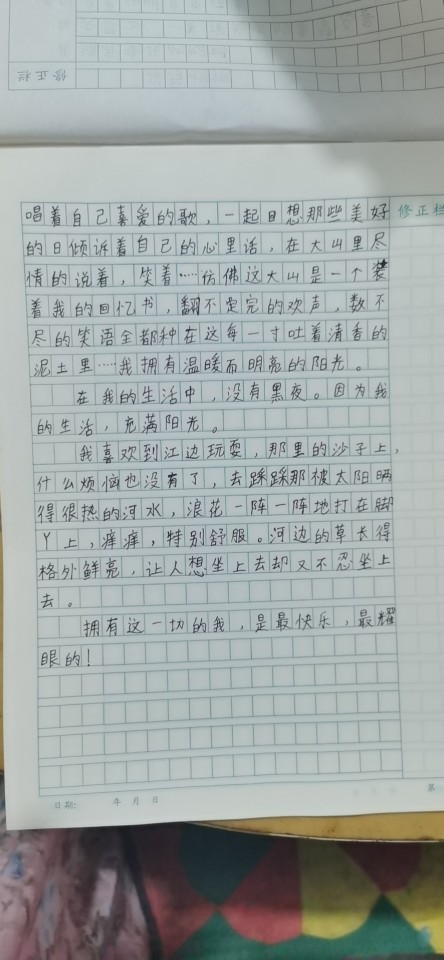 修正栏
唱着自己喜爱的歌，一起回想那些美好
修正栏
的日倾诉着自己的心里话，在大山里尽
情的说着，笑着……仿佛这大山是一个装
着我的回忆书，翻不完的欢声，数不
尽的笑语全都种在这每一寸吐着清香的
泥土里……我拥有温暖而明亮的阳光。
在我的生活中，没有黑夜。因为我
的生活，充满阳光。
我喜欢到江边玩耍，那里的沙子上，
什么烦恼也没有了，去踩踩那被太阳晒
得很热的河水，浪花一阵一阵地打在脚
丫上，痒痒，特别舒服。河边的草长得
格外鲜亮，让人想坐上去却又不忍坐上
去。
拥有这一切的我，是最快乐，最耀
眼的！
日期： 年 月 日
第